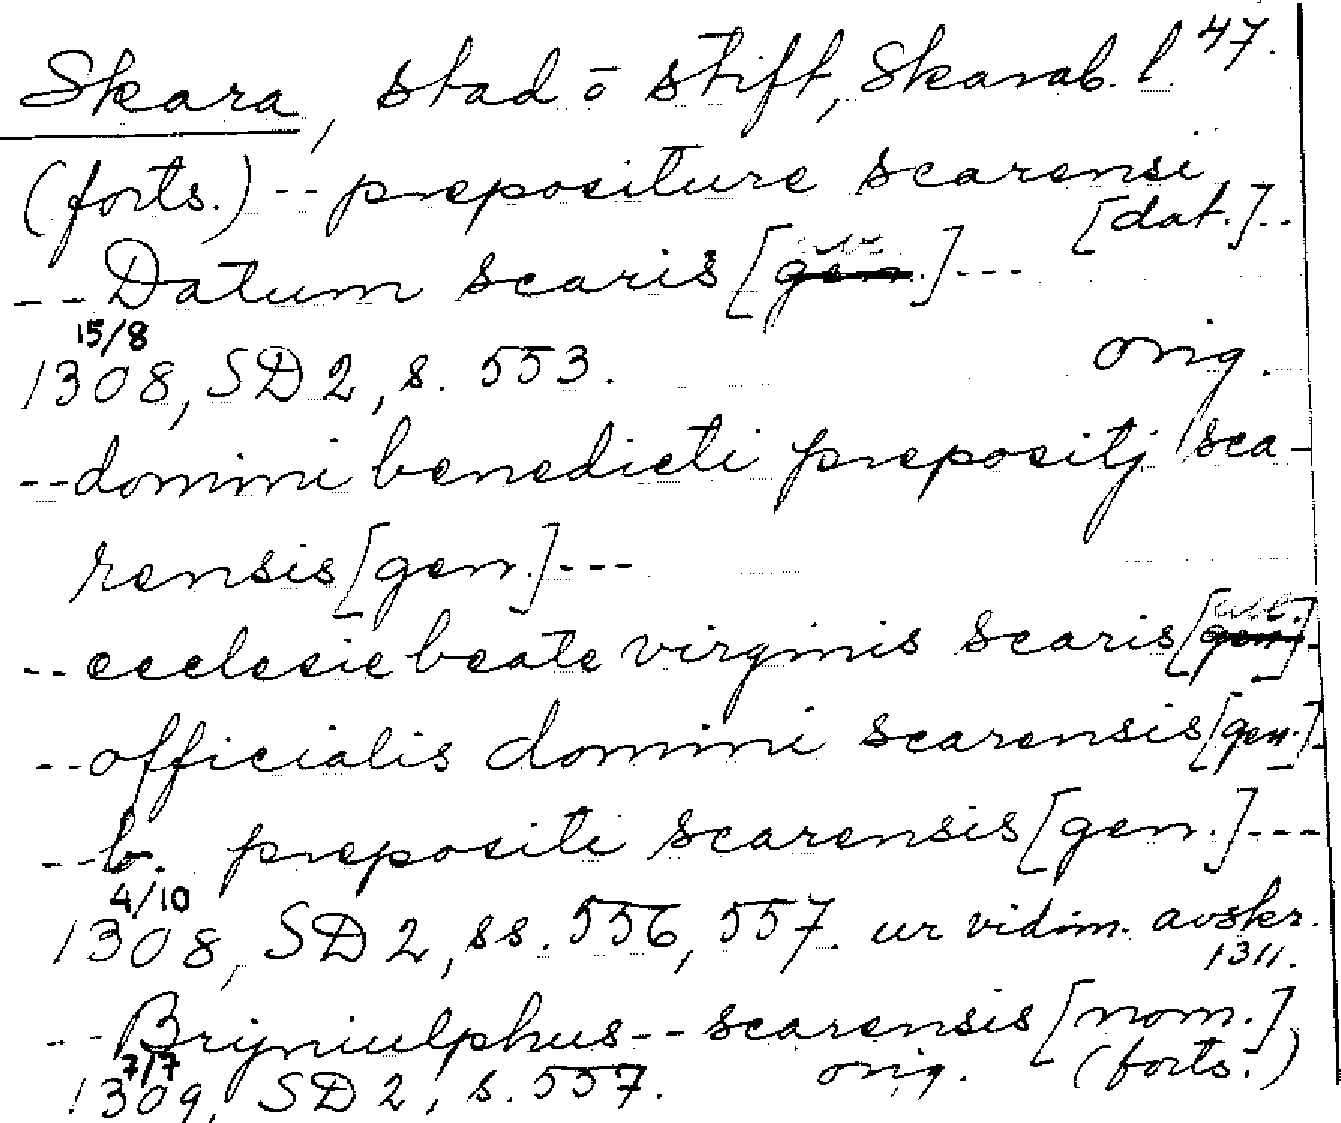 Skara, stad o stift, Skarab. l. 47.
(forts.) -- prepositure scarensi
[dat.]--
-- Datum scaris [abl.]---
15/8
1308, SD 2, s. 553. orig.
-- domini benedicti prepositj sca-
rensis [gen.]---
-- ecclesie beate virginis scaris [abl.]-
-- officialis domini scarensis [gen.]-
-- b. prepositi scarensis [gen.]---
4/10
1308, SD 2, ss. 556, 557. ur vidim. avskr.
1311.
-- Bryniulphus -- scarensis [nom.]
7/7
1309, SD 2, s. 557. orig. (forts.)